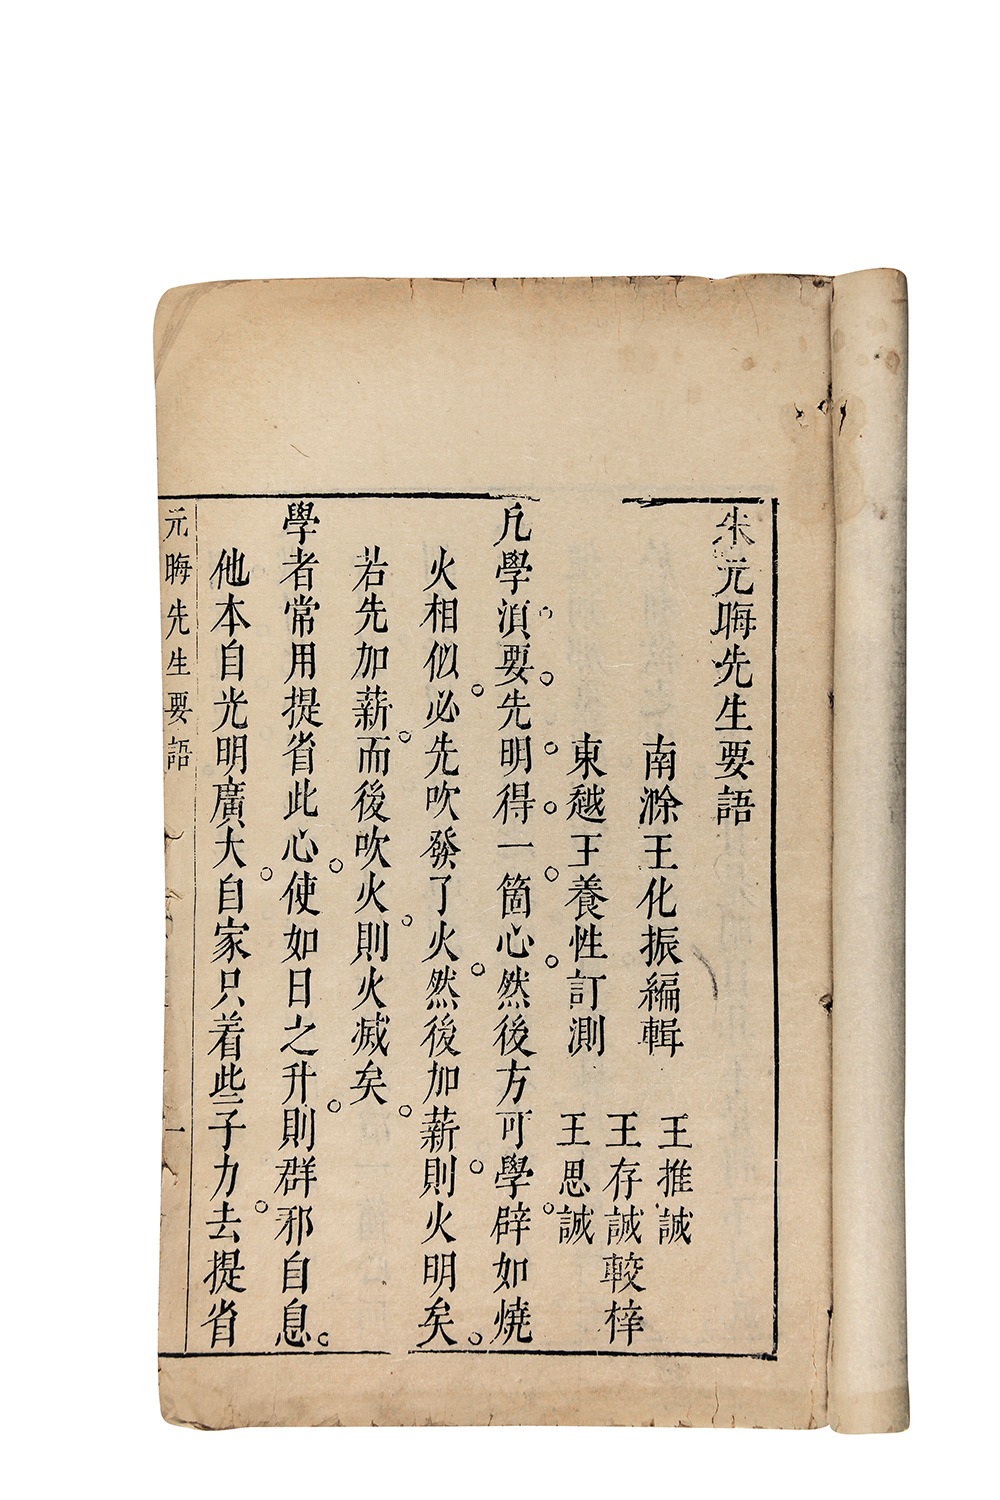 朱元晦先生要語
南滁王化振編輯
東越王養性訂測
王推誠
王存誠較梓
王思誠
凡學湏要先明得一箇心然後方可學辟如燒
火相似必先吹發了火然後加薪則火明矣
若先加薪而後吹火則火滅矣
學者常用提省此心使如日之升則群邪自息
他本自光明廣大自家只着些子力去提省
元晦先生要語
一